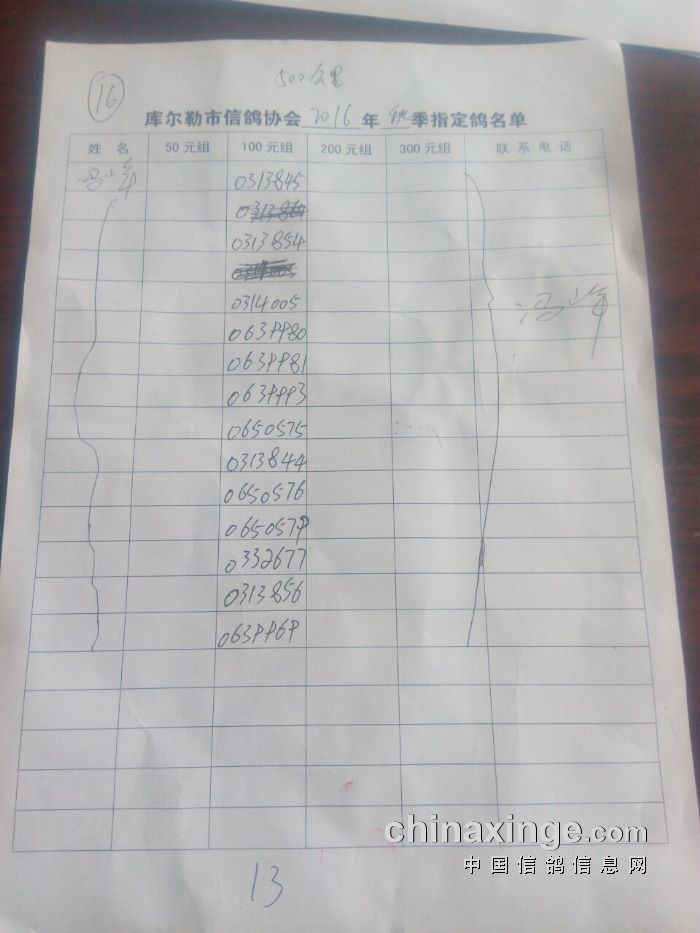 500公里
16
库尔勒市信鸽协会 2016 年 秋 季指定鸽名单
姓 名 50元组 100元组 200元组 300元组 联系电话
冯小军 0313845
0313854
0314005
冯小军
0639980
0639981
0639993
0650575
0313844
0650576
0650579
0332677
0313856
0639969
chinaxinge.com
中国信鸽信息网
13